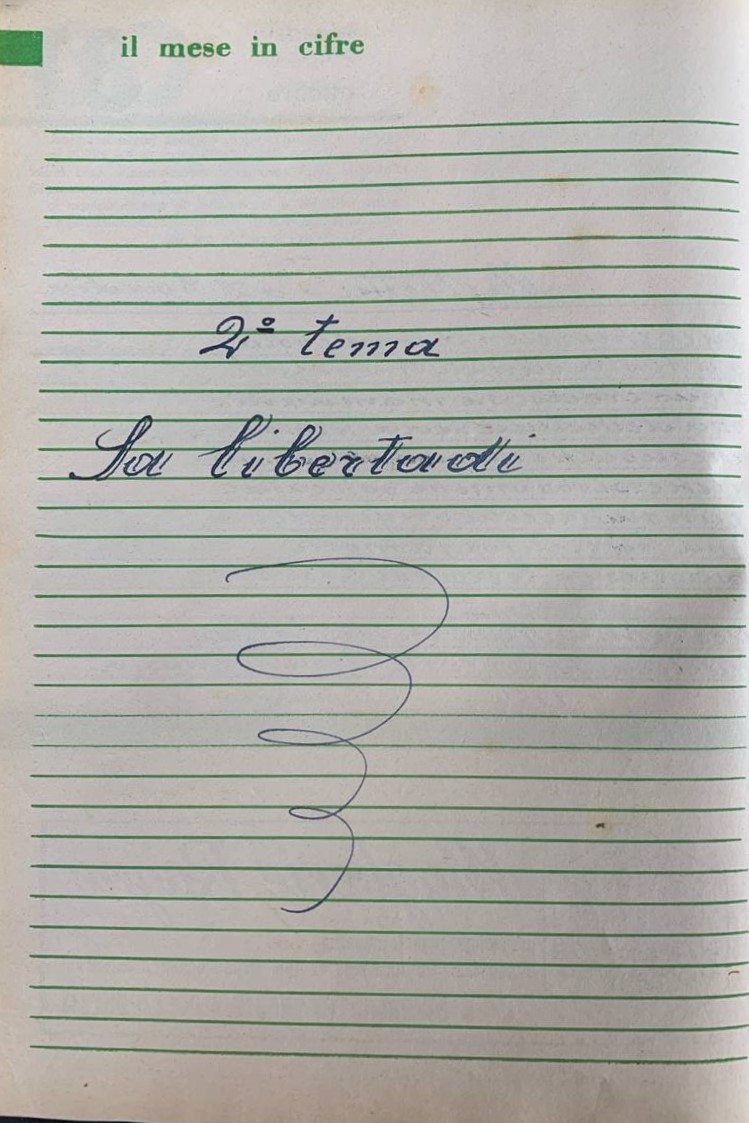 il mese in cifre
2º tema
Sa libertadi